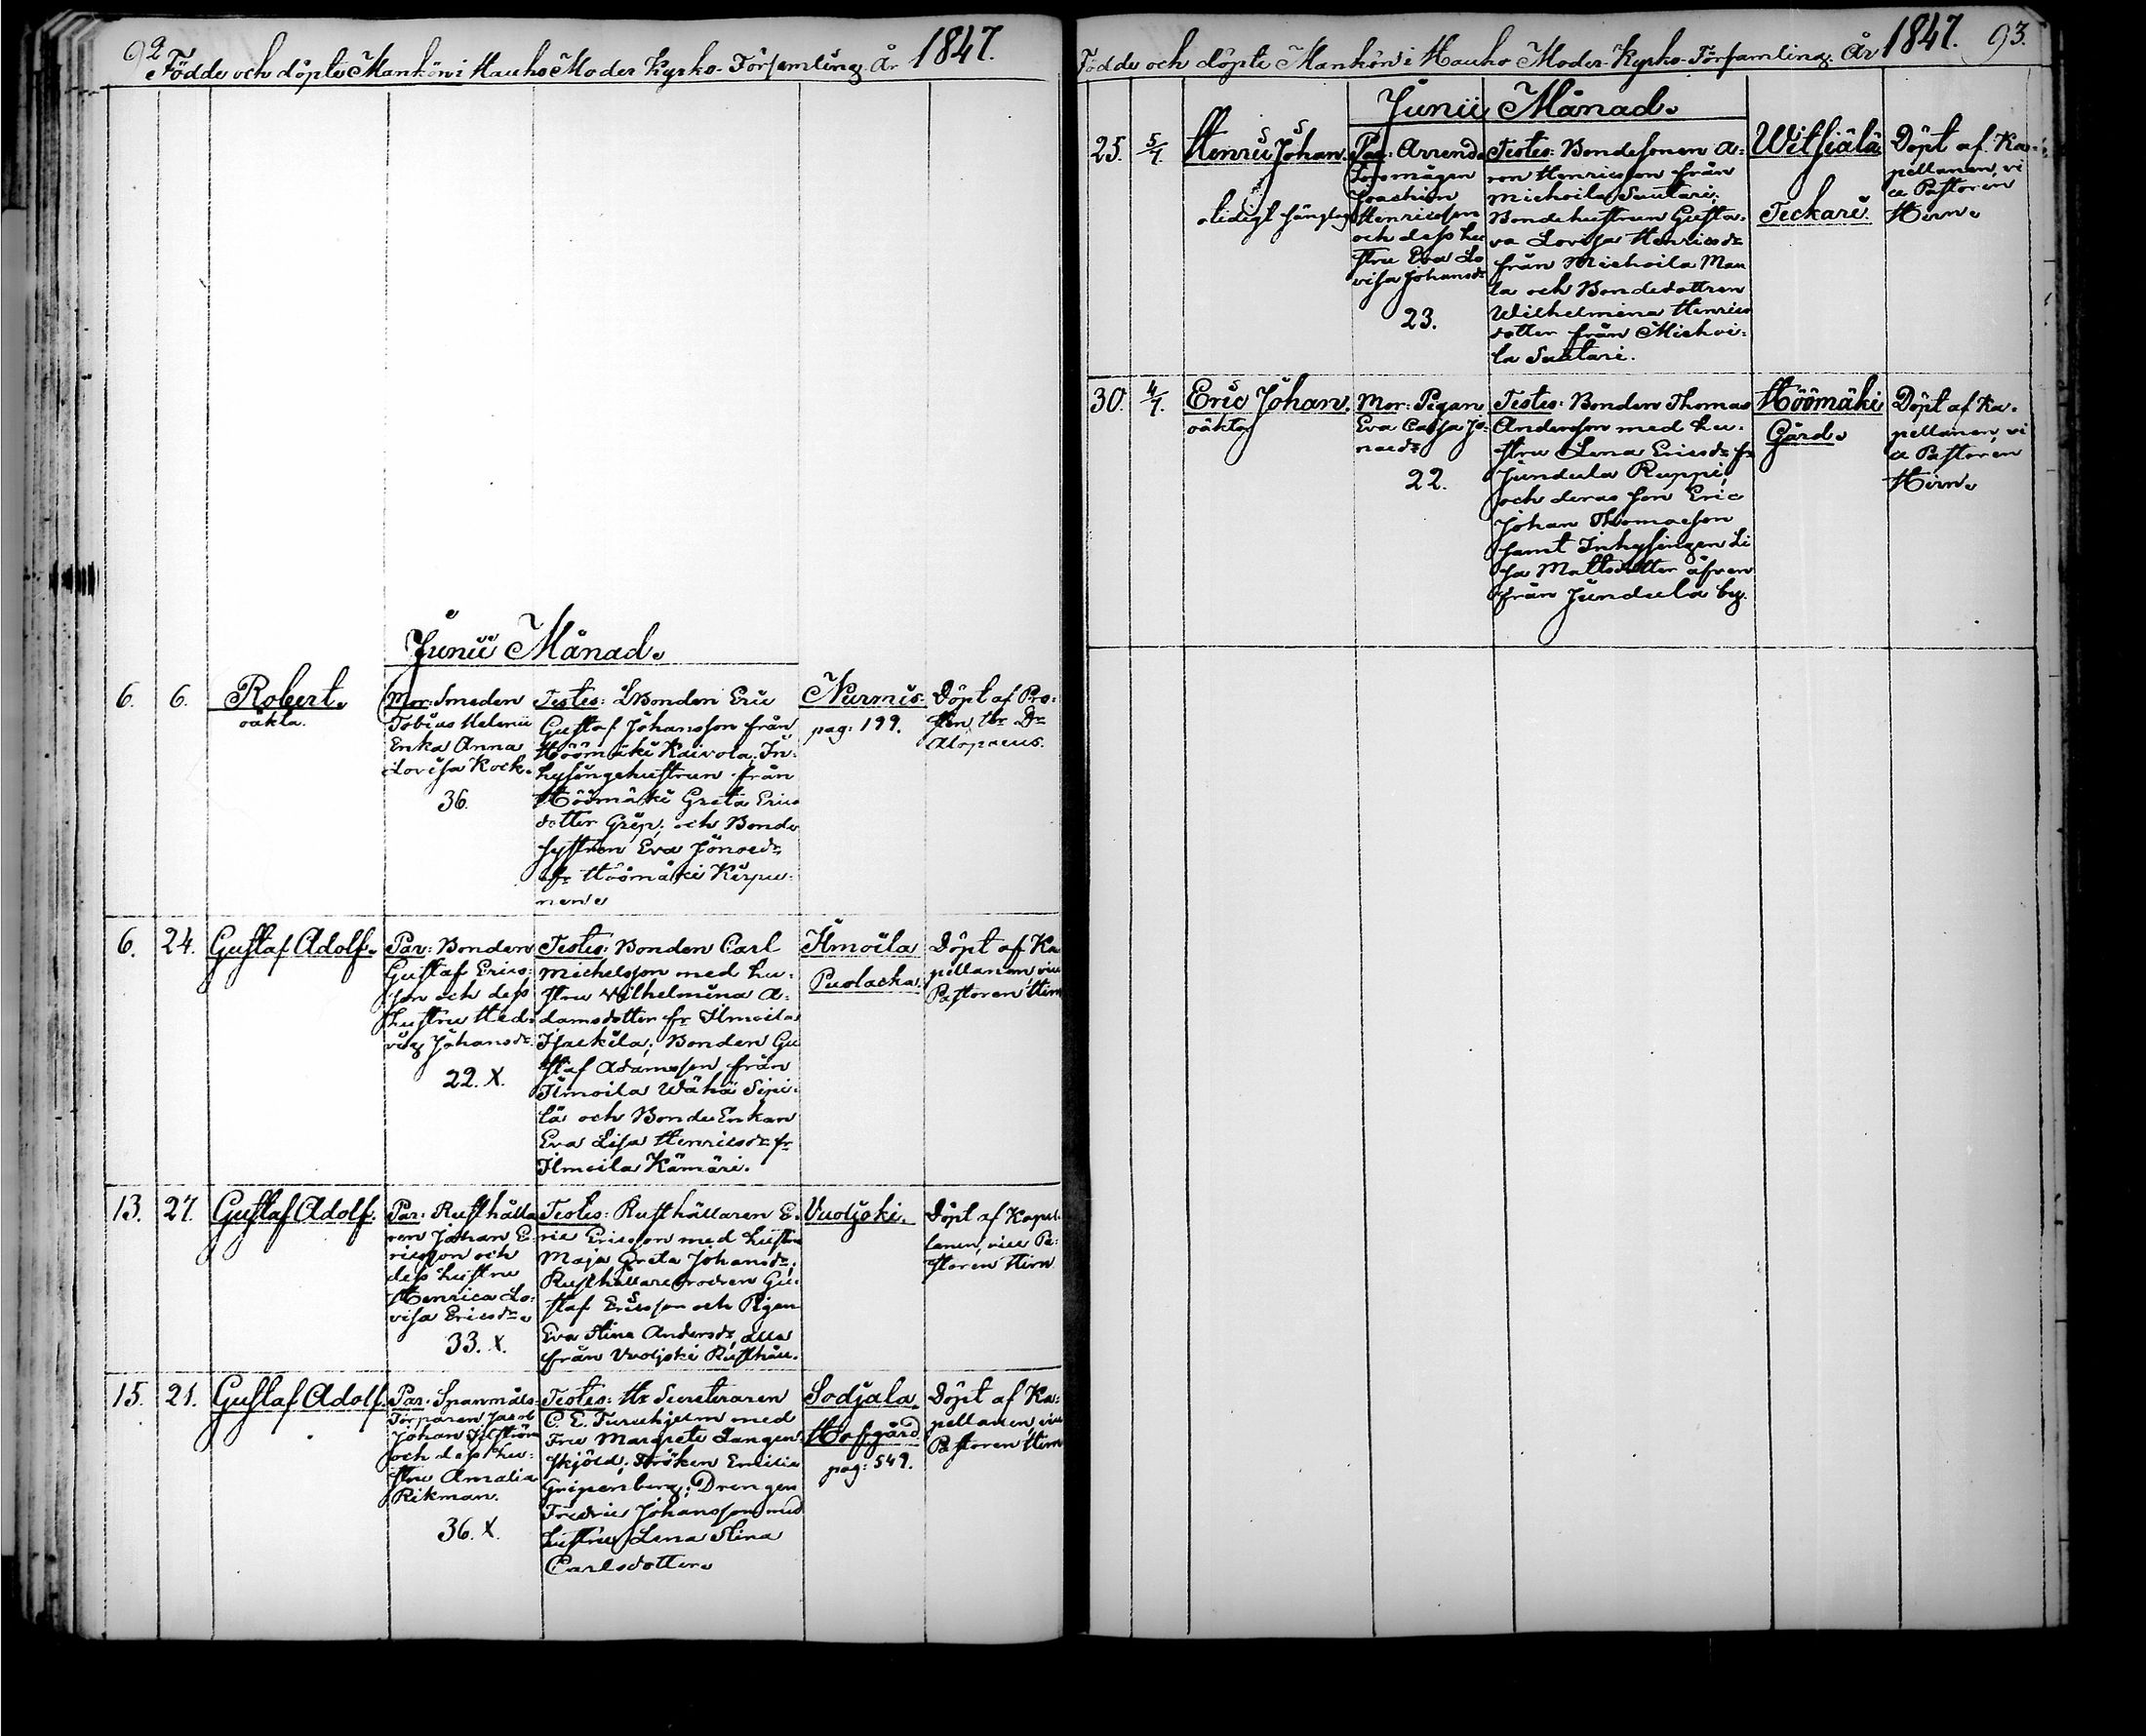 92
Födde och döpte Mankön i Hauho Moder Kyrko-Församling År 1847.
Junii Månad.
6. 6. Robert.
oäkta.
Mor: Smeden
Tobias Helenii
Enka Anna
Lovisa Kock.
36.
Testes: Bonden Eric
Gustaf Johansson från
Höömäki Kaivola; In-
hysingehustrun från
Höömäki Greta Erics
dotter Grep; och Bonde
hystrun Eva Jonaedr
fr Höömäki Kirpu-
nen.
Nurmis.
pag: 199.
Döpt af Pro-
sten Hr Dr
Alopaeus.
6. 24. Gustaf Adolf.
Par: Bonden
Gustaf Erics-
son och dess
hustru Hed-
vig Johansdr
22. X.
Testes: Bonden Carl
Michelsson med hu-
stru Wilhelmina A-
damsdotter fr Ilmoila
Isackila; Bonden Gu
staf Adamsson från
Ilmoila Wähä Sipi-
lä och Bonde Enkan
Eva Lisa Henricsdr fr
Ilmoila Kämäri.
Ilmoila
Puolacka.
Döpt af Ka
pellanen, vice
Pastoren Hirn
13. 27. Gustaf Adolf.
Par: Rusthålla
ren Johan E-
ricsson och
dess hustru
Henrica Lo-
visa Ericsdr.
33. X.
Testes: Rusthållaren E-
ric Ericsson med hustru
Maja Greta Johansdr;
Rusthållarebrodren Gu-
staf Ericsson och Pigan
Eva Stina Andersdr, alla
från Vuoljoki Rusthåll.
Vuoljoki.
Döpt af Kapel-
lanen, vice Pa-
storen Hirn
15. 21. Gustaf Adolf.
Par: Spanmåls-
Torparen Jacob
Johan
och dess hu-
stru Amalia
Rikman.
36. X.
Testes: Hr Secreteraren
C. E. Furuhjelm med
Fru Margreta Langen-
skjöld; Fröken Emilia
Gripenberg; Drengen
Fredric Johansson med
hustru Lena Stina
Carlsdotter.
Sodjala
Hofgård
pag: 549.
Döpt af Ka-
pellanen, vice
Pastoren Hirn
Födde och döpte Mankön i Hauho Moder-Kyrko-Församling År 1847. 93.
Junii Månad.
25. 5/7. Henric Johan.
Par: Arrend.
Joachim
Henricsson
och dess hu
stru Eva Lo
visa Johansdr
23.
Testes: Bondesonen A-
ron Henricsson från
Michoila Suutari;
Bondehustrun Gusta-
va Lovisa Henricsdr
från Michoila Mau
la och Bondedottren
Wilhelmina Henrics
dotter från Michoi-
la Suutari.
Witsiälä
Teckari.
Döpt af Ka-
pellanen, vi
ce Pastoren
Hirn.
30. 4/7. Eric Johan.
oäkta
Mor: Pigan
Eva Caisa Jo-
naedr
22.
Testes: Bonden Thomas
Andersson med hu-
stru Lena Ericsdr fr
Jundula Ruppi,
och deras son Eric
Johan Thomasson
samt Inhysingen Li
sa Mattsdotter äfven
från Jundula by.
Höömäki
Gård.
Döpt af Ka-
pellanen, vi
ce Pastoren
Hirn.